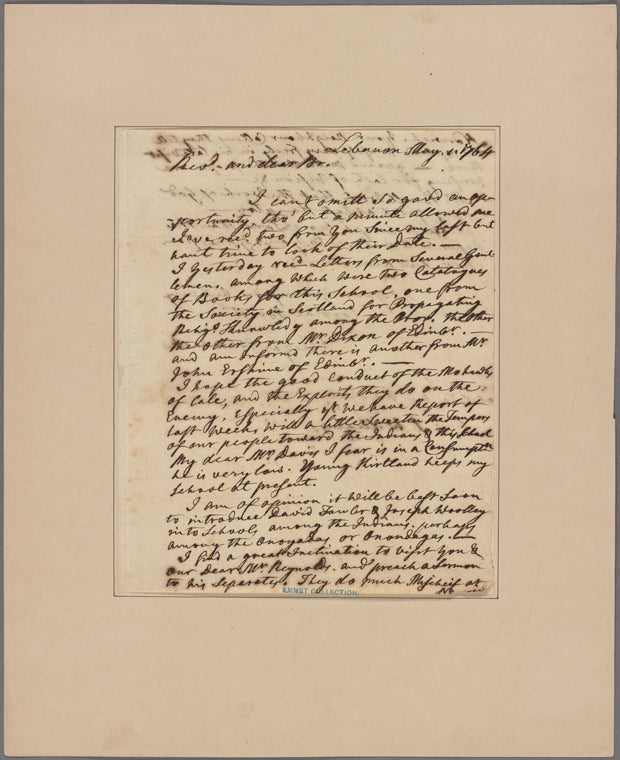 Lebanon May. 11 1764
Revd. and dear Br.
I can't omitt so good an op-
-portunity, tho' but a minute allowed me
I have recd two from you Since my last but
han't time to look of their Date. —
I Yesterday recd Letters from Several Gent
lemen. among which were two Catalogues
of Books for this School, one from
the Society in Scotland for Propagating
Religs Knowledg among the Poor, the other
the other from Mr. Dixon of Edinbr. —
and am informd there is another from Mr.
John Erskine of Edinbr. —
I hope the good Conduct of the Mohawks
of late, and the Exploits they do on the
Enemy, Especially yt we have Report of
last Week, will a little Sweeten the Tempers
of our people toward the Indians & this School
My dear Mr. Davis I fear is in a Consumptn
he is very low. Young Kirtland keeps my
School at present.
I am of opinion it will be best Soon
to introduce David Fowler & Joseph Woolley
into Schools among the Indians. perhaps
among the Onoyadas or Onondagas. —
I had a great Inclination to visit you &
our Dear Mr. Reynolds. and preach a Sermon
to his Separates. They do much Mischeif at
EMMET COLLECTION.